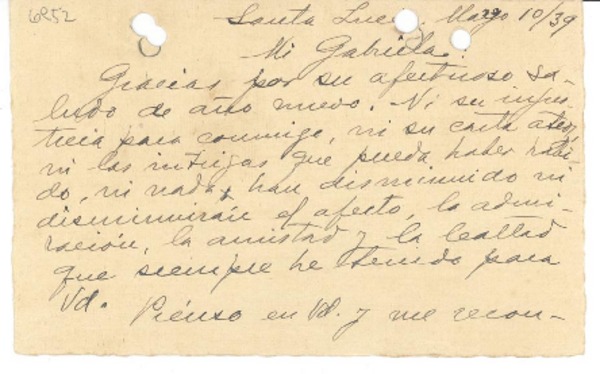 6852
Santa Luc Mayo 10/39
Mi Gabriela:
Gracias por su afectuoso sa-
ludo de año nuevo. Ni su injus-
ticia para conmigo, ni su carta
ni las intrigas que pueda haber habi-
do, ni nada, han disminuido ni
disminuirán el afecto, la admi-
ración, la amistad y la lealtad
que siempre he tenido para
Vd. Piénso en Vd. y me recon-